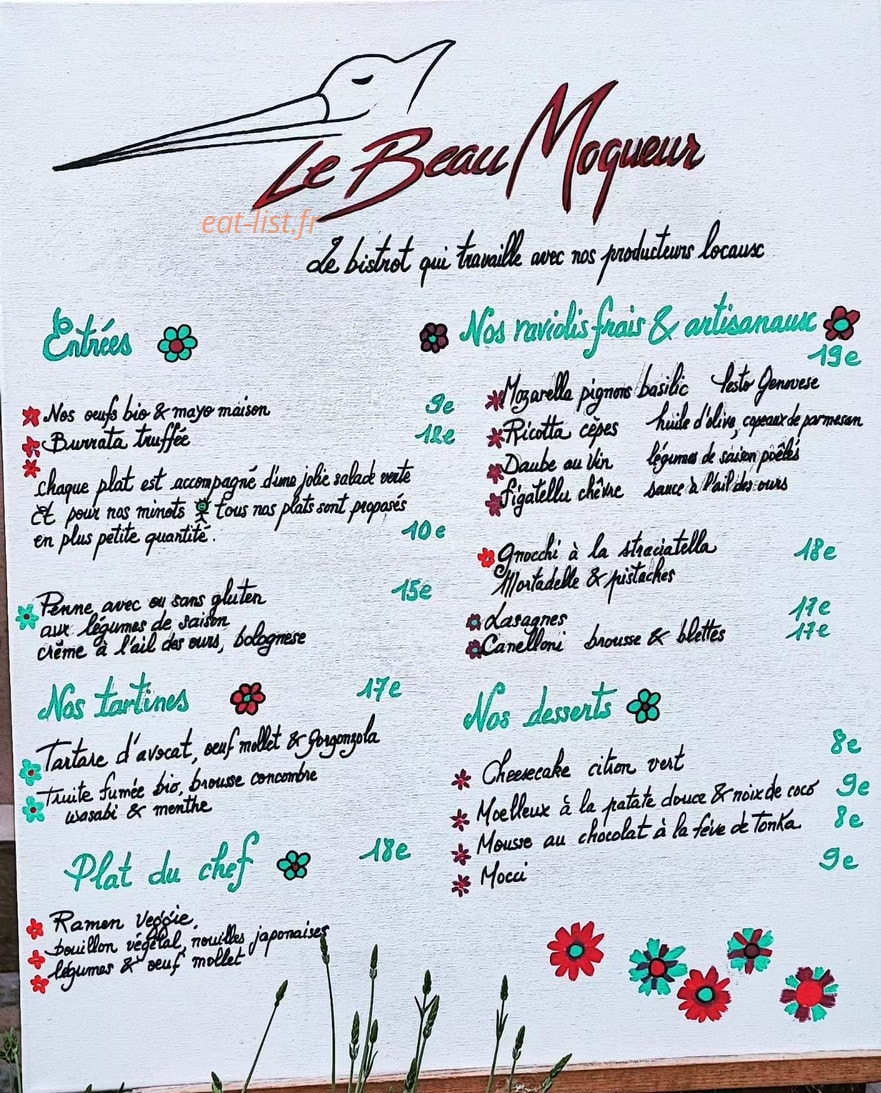 Le Beau Moqueur
eat-list.fr
Le bistrot qui travaille avec nos producteurs locaux
Entrées
Nos oeufs bio & mayo maison 9e
Burrata truffée 12e
chaque plat est accompagné d'une jolie salade verte
Et pour nos minots tous nos plats sont proposés
en plus petite quantité. 10e
Penne avec ou sans gluten 15e
aux légumes de saison
crème à l'ail des ours, bolognese
Nos tartines 17e
Tartare d'avocat, oeuf mollet & gorgonzola
Truite fumée bio, brousse concombre
wasabi & menthe
Plat du chef 18e
Ramen veggie,
bouillon végétal, nouilles japonaises
légumes & oeuf mollet
Nos raviolis frais & artisanaux
19e
Mozarella pignons basilic Pesto Genovese
Ricotta cèpes huile d'olive, copeaux de parmesan
Daube au vin légumes de saison poêlés
Figatellu chèvre sauce à l'ail des ours
Gnocchi à la straciatella 18e
Mortadelle & pistaches
Lasagnes 17e
Canelloni brousse & blettes 17e
Nos desserts
Cheesecake citron vert 8e
Moelleux à la patate douce & noix de coco 9e
Mousse au chocolat à la fève de Tonka 8e
Mocci 9e